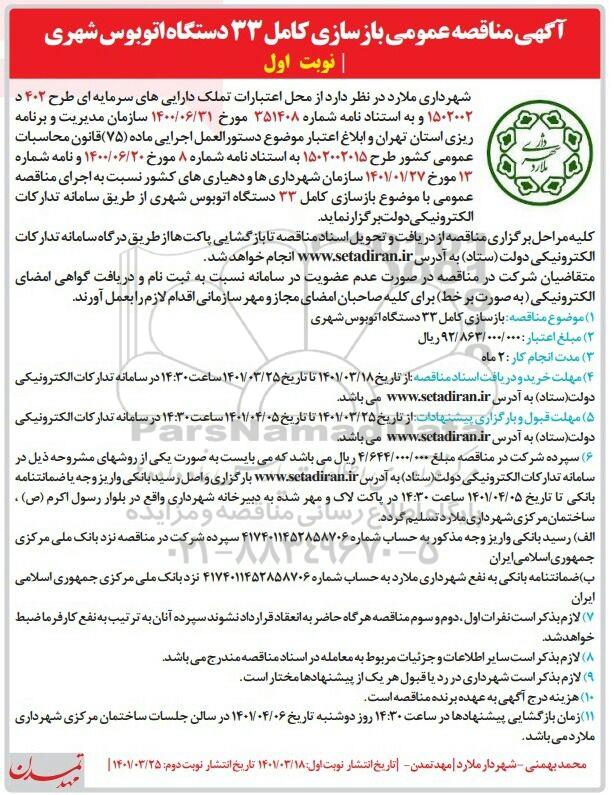 آگهی مناقصه عمومی بازسازی کامل ۳۳ دستگاه اتوبوس شهری
| نوبت اول
شهرداری ملارد در نظر دارد از محل اعتبارات تملک دارایی های سرمایه ای طرح ۴۰۲ د
۱۵۰۲۰۰۲ و به استناد نامه شماره ۳۵۱۴۰۸ مورخ ۱۴۰۰/۰۶/۳۱ سازمان مدیریت و برنامه
ریزی استان تهران و ابلاغ اعتبار موضوع دستورالعمل اجرایی ماده (۷۵) قانون محاسبات
عمومی کشور طرح ۱۵۰۲۰۰۲۰۱۵ به استناد نامه شماره ۸ مورخ ۱۴۰۰/۰۶/۲۰ و نامه شماره
۱۳ مورخ ۱۴۰۱/۰۱/۲۷ سازمان شهرداری ها و دهیاری های کشور نسبت به اجرای مناقصه
عمومی با موضوع بازسازی کامل ۳۳ دستگاه اتوبوس شهری از طریق سامانه تدارکات
الکترونیکی دولت برگزار نماید.
شهرداری ملارد
کلیه مراحل برگزاری مناقصه از دریافت و تحویل اسناد مناقصه تا بازگشایی پاکت ها از طریق درگاه سامانه تدارکات
الکترونیکی دولت (ستاد) به آدرس www.setadiran.ir انجام خواهد شد.
متقاضیان شرکت در مناقصه در صورت عدم عضویت در سامانه نسبت به ثبت نام و دریافت گواهی امضای
الکترونیکی (به صورت بر خط) برای کلیه صاحبان امضای مجاز و مهر سازمانی اقدام لازم را بعمل آورند.
۱) موضوع مناقصه: بازسازی کامل ۳۳ دستگاه اتوبوس شهری
۲) مبلغ اعتبار: ۹۲/۸۶۳/۰۰۰/۰۰۰ ریال
۳) مدت انجام کار: ۲ ماه
۴) مهلت خرید و دریافت اسناد مناقصه: از تاریخ ۱۴۰۱/۰۳/۱۸ تا تاریخ ۱۴۰۱/۰۳/۲۵ ساعت ۱۴:۳۰ در سامانه تدارکات الکترونیکی
دولت (ستاد) به آدرس www.setadiran.ir می باشد.
۵) مهلت قبول و بارگزاری پیشنهادات: از تاریخ ۱۴۰۱/۰۳/۲۵ تا تاریخ ۱۴۰۱/۰۴/۰۵ ساعت ۱۴:۳۰ در سامانه تدارکات الکترونیکی
دولت (ستاد) به آدرس www.setadiran.ir می باشد.
۶) سپرده شرکت در مناقصه مبلغ ۴/۶۴۴/۰۰۰/۰۰۰ ریال می باشد که می بایست به صورت یکی از روشهای مشروحه ذیل در
سامانه تدارکات الکترونیکی دولت (ستاد) به آدرس www.setadiran.ir بارگزاری و اصل رسید بانکی واریز وجه یا ضمانتنامه
بانکی تا تاریخ ۱۴۰۱/۰۴/۰۵ ساعت ۱۴:۳۰ در پاکت لاک و مهر شده به دبیرخانه شهرداری واقع در بلوار رسول اکرم (ص) ،
ساختمان مرکزی شهرداری ملارد تسلیم گردد.
الف) رسید بانکی واریز وجه مذکور به حساب شماره ۴۱۷۴۰۱۱۴۵۲۸۵۸۷۰۶ سپرده شرکت در مناقصه نزد بانک ملی مرکزی
جمهوری اسلامی ایران
ب) ضمانتنامه بانکی به نفع شهرداری ملارد به حساب شماره ۴۱۷۴۰۱۱۴۵۲۸۵۸۷۰۶ نزد بانک ملی مرکزی جمهوری اسلامی
ایران
۷) لازم بذکر است نفرات اول ، دوم و سوم مناقصه هر گاه حاضر به انعقاد قرارداد نشوند سپرده آنان به ترتیب به نفع کارفرما ضبط
خواهد شد.
۸) لازم بذکر است سایر اطلاعات و جزئیات مربوط به معامله در اسناد مناقصه مندرج می باشد.
۹) لازم بذکر است شهرداری در رد یا قبول هر یک از پیشنهادها مختار است.
۱۰) هزینه درج آگهی به عهده برنده مناقصه است.
۱۱) زمان بازگشایی پیشنهادها در ساعت ۱۴:۳۰ روز دوشنبه تاریخ ۱۴۰۱/۰۴/۰۶ در سالن جلسات ساختمان مرکزی شهرداری
ملارد می باشد.
محمد بهمنی - شهردار ملارد | مهد تمدن - | تاریخ انتشار نوبت اول: ۱۴۰۱/۰۳/۱۸ تاریخ انتشار نوبت دوم: ۱۴۰۱/۰۳/۲۵ |
مهد تمدن
ParsNamadData
پایگاه اطلاع رسانی مناقصه و مزایده
۰۲۱-۸۸۳۴۹۶۷۰-۵